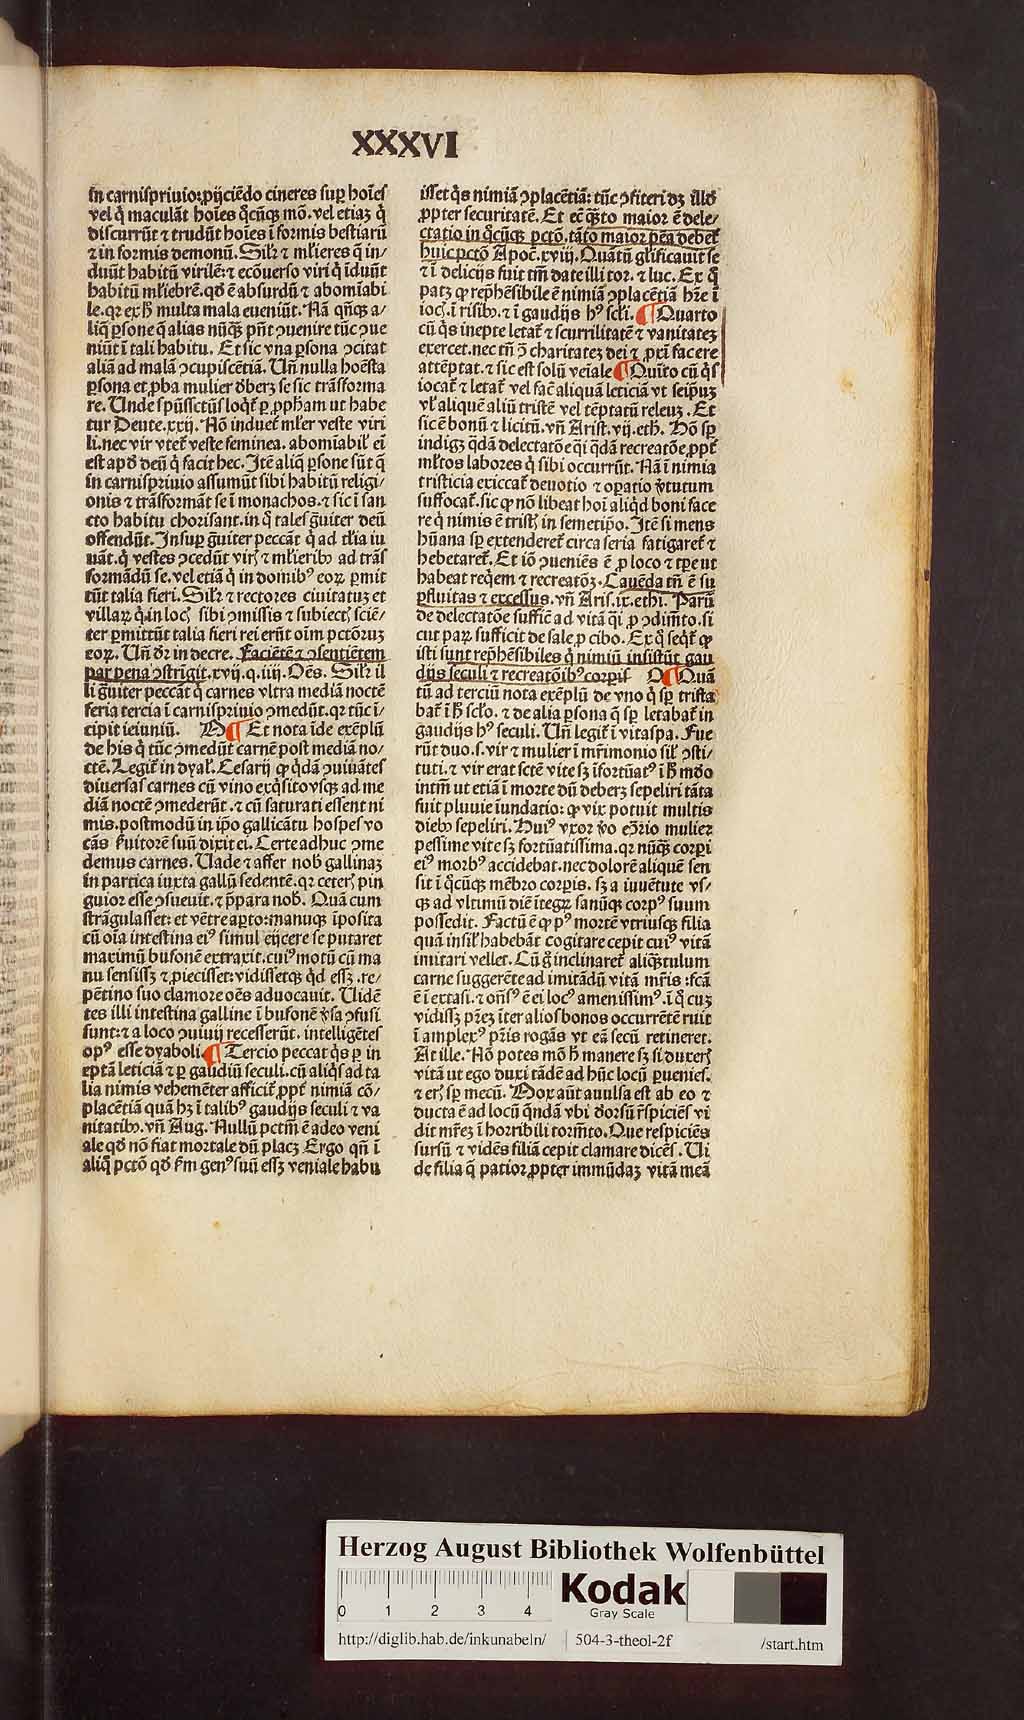 XXXVI
in carnispriuio: ꝓijciēdo cineres suꝑ hoīes
vel q̇ maculāt hoīes q̄cūqꝫ mō. vel etiaꝫ q̇
discurrūt ⁊ trudūt hoīes ī formis bestiarū
⁊ in formis demonū. Silr̄ ⁊ mlieres q̄ in⸗
duūt habitū virilē: ⁊ ecōuerso viri q̇ īduūt
habitū mliebrē. qď ē absurdū ⁊ abomīabi
le. qꝛ ex hͦ multa mala eueniūt. Nā qn̄qꝫ a⸗
liq̄ ꝑsone q̄ alias nūqꝫ pn̄t ꝯuenire tūc ꝯue
niūt ī tali habitu. Et sic vna ꝑsona ꝯcitat
aliā ad malā ꝯcupiscētiā. Un̄ nulla hoēsta
ꝑsona et ꝓba mulier dʒ̄ se sic trāsforma
re. Unde spūssctūs loqt̄ ꝑ ꝓphꝫam ut habe
tur Deute. xxij. Nō induet̄ mlier veste viri
li. nec vir vtet̄ veste feminea. abomīabil̓ eī
est apď deū q̇ facit hec. Itē aliq̄ ꝑsone sūt q̄
in carnispriuio assumūt sibi habitū religi⸗
onis ⁊ trāsformāt se ī monachos. ⁊ sic ī san
cto habitu chorisant. in q̇ tales gͣuiter deū
offendūt. Insuꝑ gͣuiter peccāt q̇ ad tl̓ia iu
uāt. q̇ vestes ꝯcedūt viris ⁊ mlierib᷒ ad trās
formādū se. vel etiā q̇ in domib᷒ eoꝝ ꝑmit
tūt talia fieri. Silr̄ ⁊ rectores ciuitatuꝫ et
villaꝝ q̇ in locis sibi ꝯmissis ⁊ subiectis sciē⸗
ter ꝑmittūt talia fieri rei erūt oīm pctōruꝫ
eoꝝ. Un̄ dr̄ in decre. Faciētē ⁊ ꝯsentiētem
par pena ꝯstrīgit. xvij. q. iiij. Oēs. Silr̄ il
li gͣuiter peccāt q̇ carnes vltra mediā noctē
feria tercia ī carnispriuio ꝯmedūt. qꝛ tūc ī⸗
cipit ieiuniū. N ¶ Et nota īde exēplū
de his q̇ tūc ꝯmedūt carnē post mediā no⸗
ctē. Legit̄ in dyal̓. Cesarij ꝙ qͥdā ꝯuiuātes
diuersas carnes cū vino exq̇sito vsqꝫ ad me
diā noctē ꝯmederūt. ⁊ cū saturati essent ni
mis. postmodū in ip̄o gallicātu hospes vo
cās fuitorē suū dixit ei. Certe adhuc ꝯme
demus carnes. Uade ⁊ affer nob̓ gallinaꝫ
in partica iuxta gallū sedentē. qꝛ ceteris pin
guior esse ꝯsueuit. ⁊ p̄para nob̓. Quā cum
strāgulasset: et vētre aꝑto: manuqꝫ īposita
cū oīa intestina ei᷒ simul eijcere se putaret
maximū bufonē extraxit. cui᷒ motū cū ma
nu sensissꝫ ⁊ ꝓiecisset: vidissetqꝫ qͥd essꝫ. re⸗
pētino suo clamore oēs aduocauit. Uidē
tes illi intestina galline ī bufonē v̓sa ꝯfusi
sunt: ⁊ a loco ꝯuiuij recesserūt. intelligētes
op᷒ esse dyaboli. ¶ Tercio peccat q̇s ꝑ in
eptā leticiā ⁊ ꝑ gaudiū seculi. cū aliq̇s ad ta
lia nimis vehemēter afficit̄. ꝓpt̄ nimiā cō⸗
placētiā quā hꝫ ī talib᷒ gaudijs seculi ⁊ va
nitatib᷒. vn̄ Aug. Nullū pctm̄ ē adeo veni
ale qď nō fiat mortale dū placꝫ Ergo qn̄ ī
aliq̇ pctō qď fm gen᷒ suū essꝫ veniale habu
isset q̇s nimiā ꝯplacētiā: tūc ꝯfiteri dꝫ illď
ꝓpter securitatē. Et ec̄ q̄to maior ē dele⸗
ctatio in q̇cūqꝫ pctō. tāto maior pēa debet̄
huic pctō Apoc̄. xviij. Quātū glīficauit se
⁊ ī delicijs fuit tm̄ date illi tor. ⁊ luc. Ex q̇
patꝫ ꝙ rep̄hēsibile ē nimiā ꝯplacētiā hr̄e ī
iocis. ī risib᷒. ⁊ ī gaudijs h᷒ scl̓i. ¶ Quarto
cū q̇s inepte letat̄ ⁊ scurrilitatē ⁊ vanitateꝫ
exercet. nec tn̄ ꝯ̄ charitateꝫ dei ⁊ ꝓxī facere
attēptat. ⁊ sic est solū veīale ¶ Quīto cū q̇s
iocat̄ ⁊ letat̄ vel fac̄ aliquā leticiā vt seip̄uꝫ
vl̓ aliquē aliū tristē vel tēptatū releuꝫ. Et
sic ē bonū ⁊ licitū. vn̄ Arist̄. vij. eth̓. Hō sꝑ
indigꝫ q̇dā delectatōe qͥ ī q̇dā recreatōe. ꝓpt̄
ml̓tos labores q̇ sibi occurrūt. Nā ī nimia
tristicia exiccat̄ deuotio ⁊ oꝑatio v̓tutum
suffocat̄. sic ꝙ nō libeat hoī aliq̇d boni face
re q̇ nimis ē tristis in semetip̄o. Itē si mens
hūana sꝑ extenderet̄ circa seria fatigaret̄ ⁊
hebetaret̄. Et iō ꝯueniēs ē ꝓ loco ⁊ tꝑe ut
habeat reqͥem ⁊ recreatōꝫ. Cauēda tn̄ ē su
ꝑfluitas ⁊ excessus. vn̄ Aris. ix. ethi. Parū
de delectatōe suffic̄ ad vitā qͥ ꝓ ꝯdimēto. si
cut paꝝ sufficit de sale ꝓ cibo. Ex q̇ seqt̄ ꝙ
isti sunt rep̄hēsibiles q̇ nimiū insistūt gau
dijs seculi ⁊ recreatōib᷒ corꝑis O ¶ Quā
tū ad terciū nota exēplū de vno q̇ sꝑ trista
bat̄ ī hͦ scl̓o. ⁊ de alia ꝑsona q̄ sꝑ letabat̄ in
gaudijs h᷒ seculi. Un̄ legit̄ ī vitaspa. Fue
rūt duo. s. vir ⁊ mulier ī mr̄imonio sil̓ ꝯsti⸗
tuti. ⁊ vir erat sctē vite sꝫ īfortūat᷒ ī hͦ mūdo
intm̄ ut etiā ī morte dū deberꝫ sepeliri tāta
fuit pluuie īundatio: ꝙ vix potuit multis
dieb᷒ sepeliri. Hui᷒ vxor v̓o ecōtrio mulier
pessime vite sꝫ fortūatissima. qꝛ nūqꝫ corꝑi
ei᷒ morb᷒ accidebat. nec dolorē aliquē sen
sit ī q̇cūqꝫ mēbro corꝑis. sꝫ a iuuētute vs⸗
qꝫ ad vltimū diē ītegꝝ sanūqꝫ corp᷒ suum
possedit. Factū ē ꝙ p᷒ mortē vtriusqꝫ filia
quā insil̓ habebāt cogitare cepit cui᷒ vitā
imitari vellet. Cū g̊ inclinaret̄ aliqͣtulum
carne suggerēte ad imitādū vitā mr̄is: fctā
ē ī extasi. ⁊ on̄s᷒ ē ei loc᷒ amenissim᷒. ī q̇ cuꝫ
vidissꝫ pr̄eꝫ īter alios bonos occurrētē ruit
ī amplex᷒ pr̄is rogās vt eā secū retineret.
At ille. Nō potes mō hͦ manere sꝫ si duxeris
vitā ut ego duxi tādē ad hūc locū ꝑuenies.
⁊ eris sꝑ mecū. Mox aūt auulsa est ab eo ⁊
ducta ē ad locū q̄ndā vbi deorsū r̄spiciēs vi
dit mr̄eꝫ ī horribili tormēto. Que respiciēs
sursū ⁊ vidēs filiā cepit clamare dicēs. Ui
de filia q̄ patior ꝓpter immūdaꝫ vitā meā
Herzog August Bibliothek Wolfenbüttel
0 1 2 3 4
Kodak
Gray Scale
http://diglib.hab.de/inkunabeln/ 504-3-theol-2f /start.htm